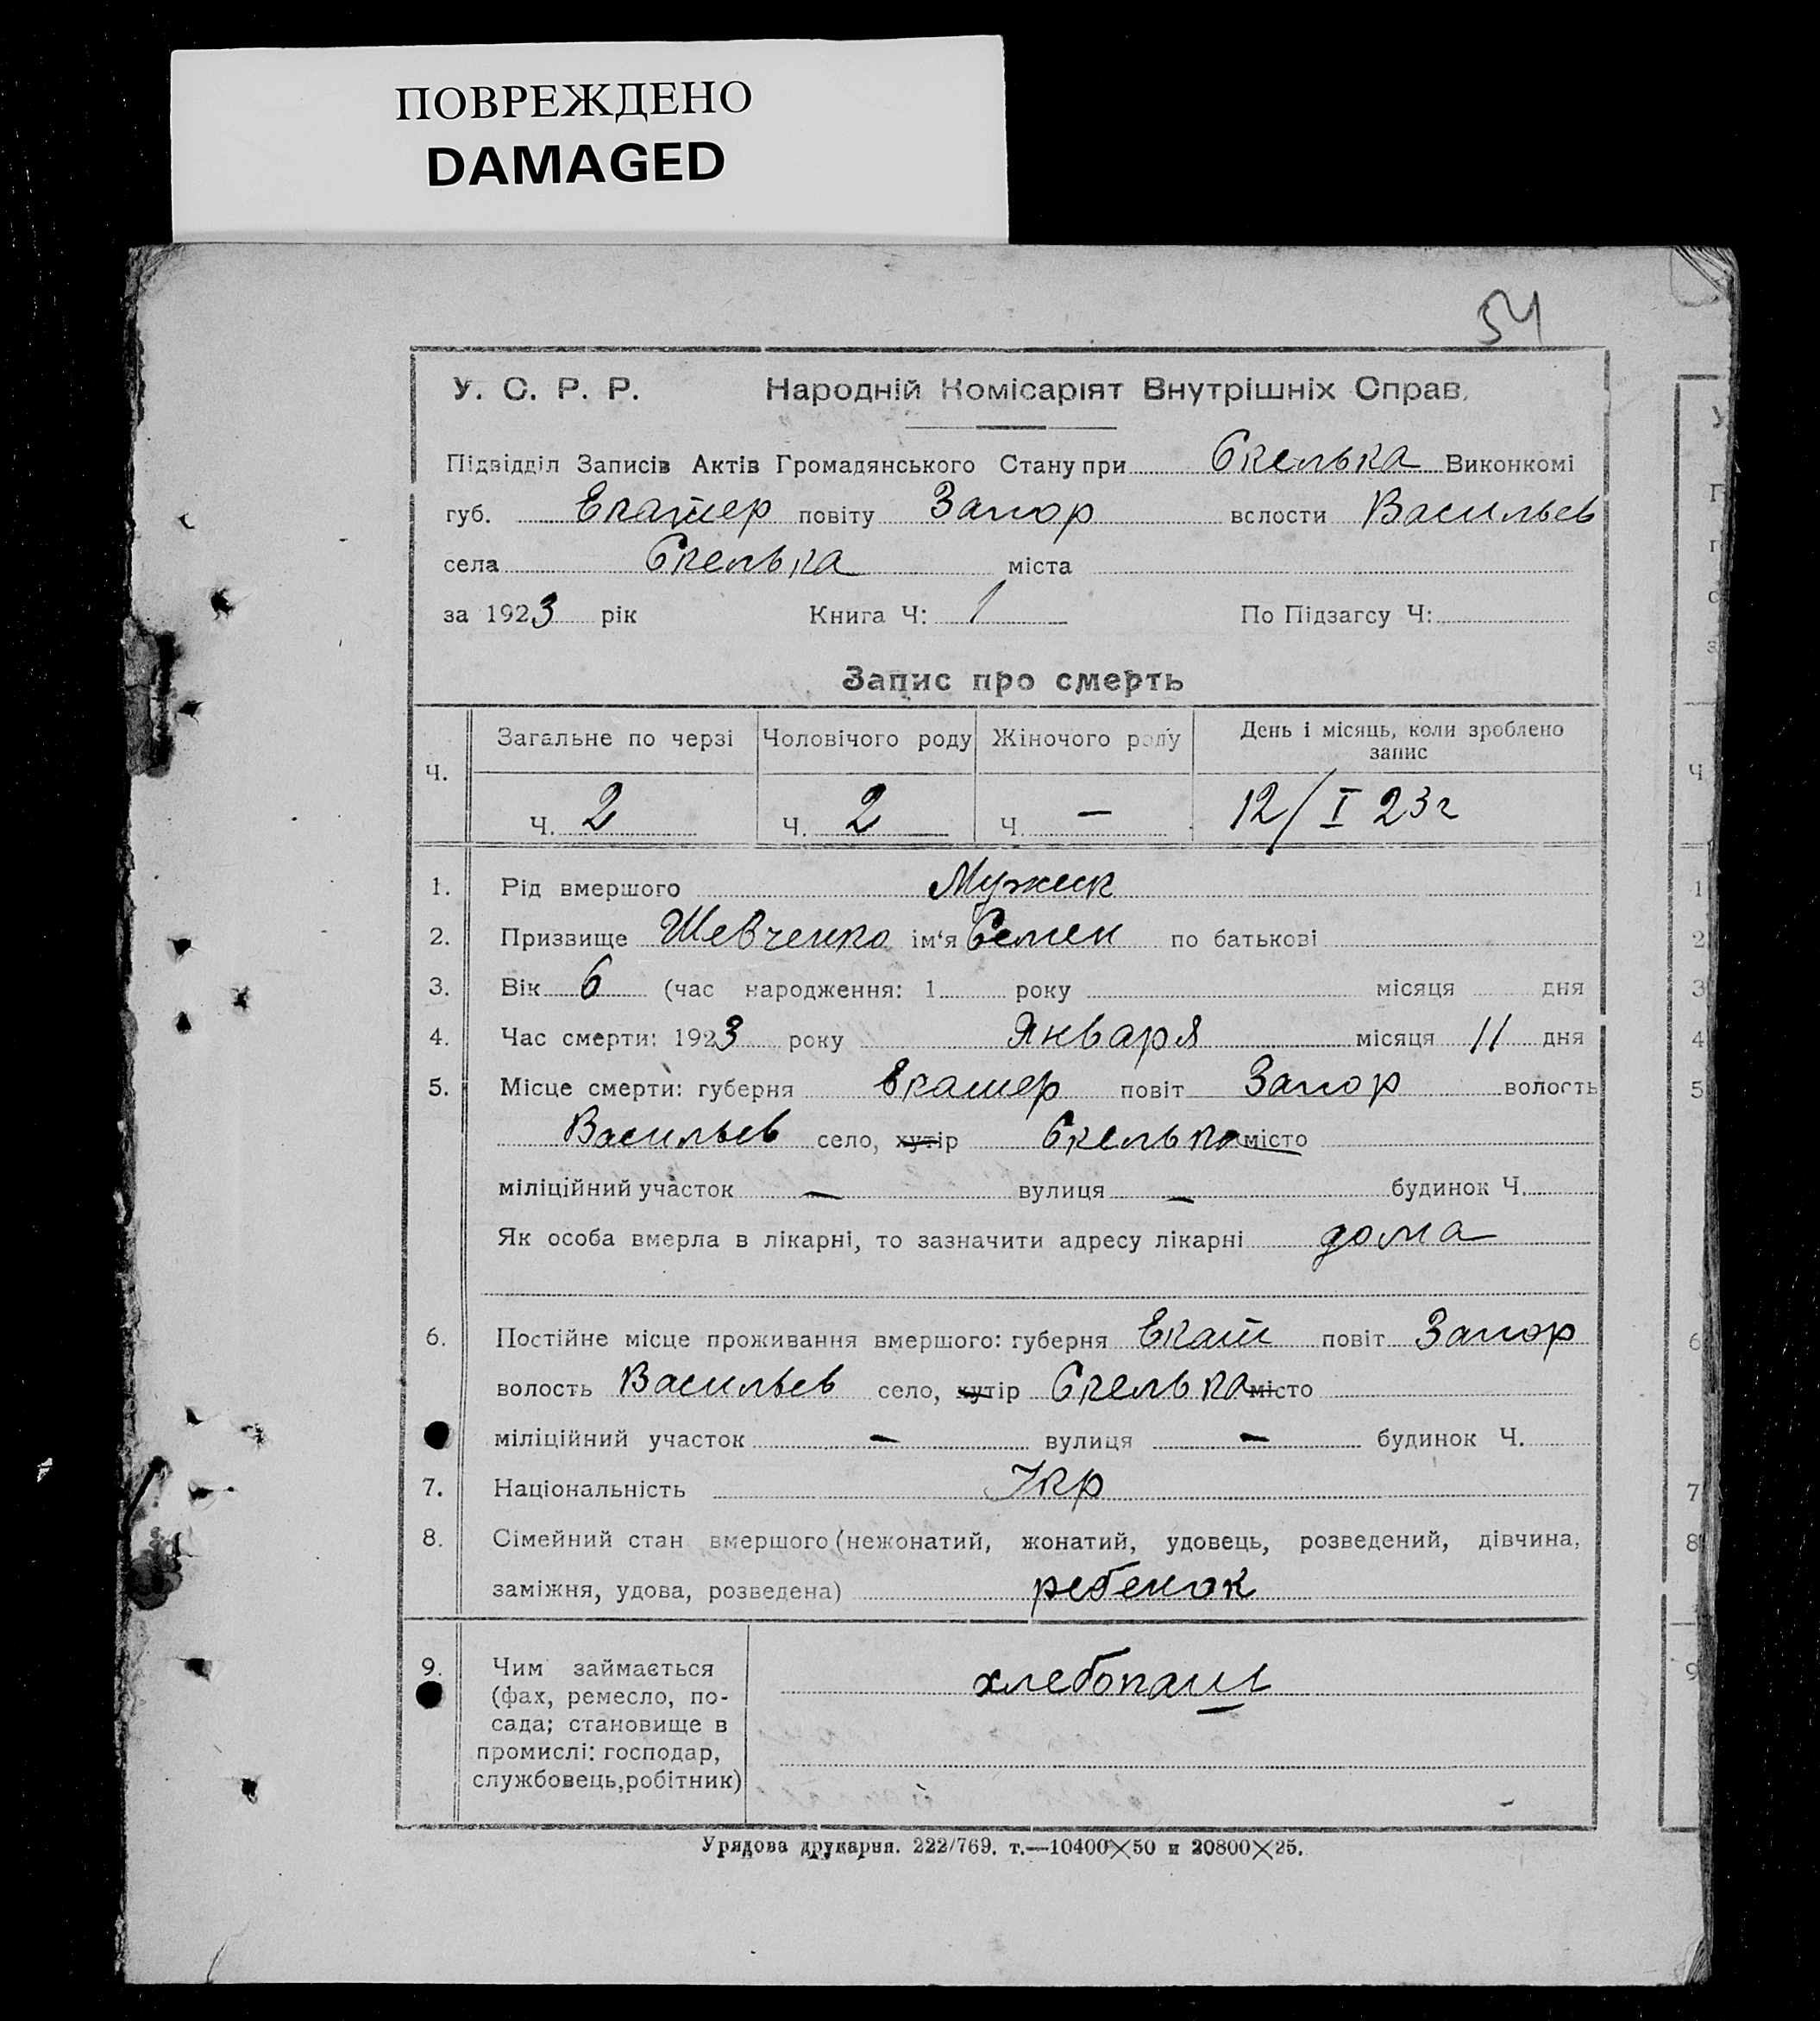 ПОВРЕЖДЕНО
DAMAGED
54
У. С. Р. Р. Народній Комісаріят Внутрішніх Справ.
Підвідділ Записів Актів Громадянського Стану при Скелька Виконкомі
губ. Екатер повіту Запор вслости Васильев
села Скелька міста
за 1923 рік Книга Ч: 1 По Підзагсу Ч:
Запис про смерть
Ч. Загальне по черзі Чоловічого роду Жіночого роду День і місяць, коли зроблено запис
Ч. 2 Ч. 2 Ч. — 12/I 23г
1. Рід вмершого Мужск
2. Призвище Шевченко ім'я Семен по батькові
3. Вік 6 (час народження: 1 року місяця дня
4. Час смерти: 1923 року Января місяця 11 дня
5. Місце смерти: губерня Екатер повіт Запор волость
Васильев село, хутір Скелька місто
міліційний участок — вулиця — будинок Ч.
Як особа вмерла в лікарні, то зазначити адресу лікарні дома
6. Постійне місце проживання вмершого: губерня Екат повіт Запор
волость Васильев село, хутір Скелька місто
міліційний участок — вулиця — будинок Ч.
7. Національність Укр
8. Сімейний стан вмершого (нежонатий, жонатий, удовець, розведений, дівчина,
заміжня, удова, розведена) ребенок
9. Чим займається хлебопаш
(фах, ремесло, по-
сада; становище в
промислі: господар,
службовець,робітник)
Урядова друкарня. 222/769. т.—10400×50 и 20800×25.
У
Г
г
с
з
Ч
1
2
3
4
5
6
7
8
9